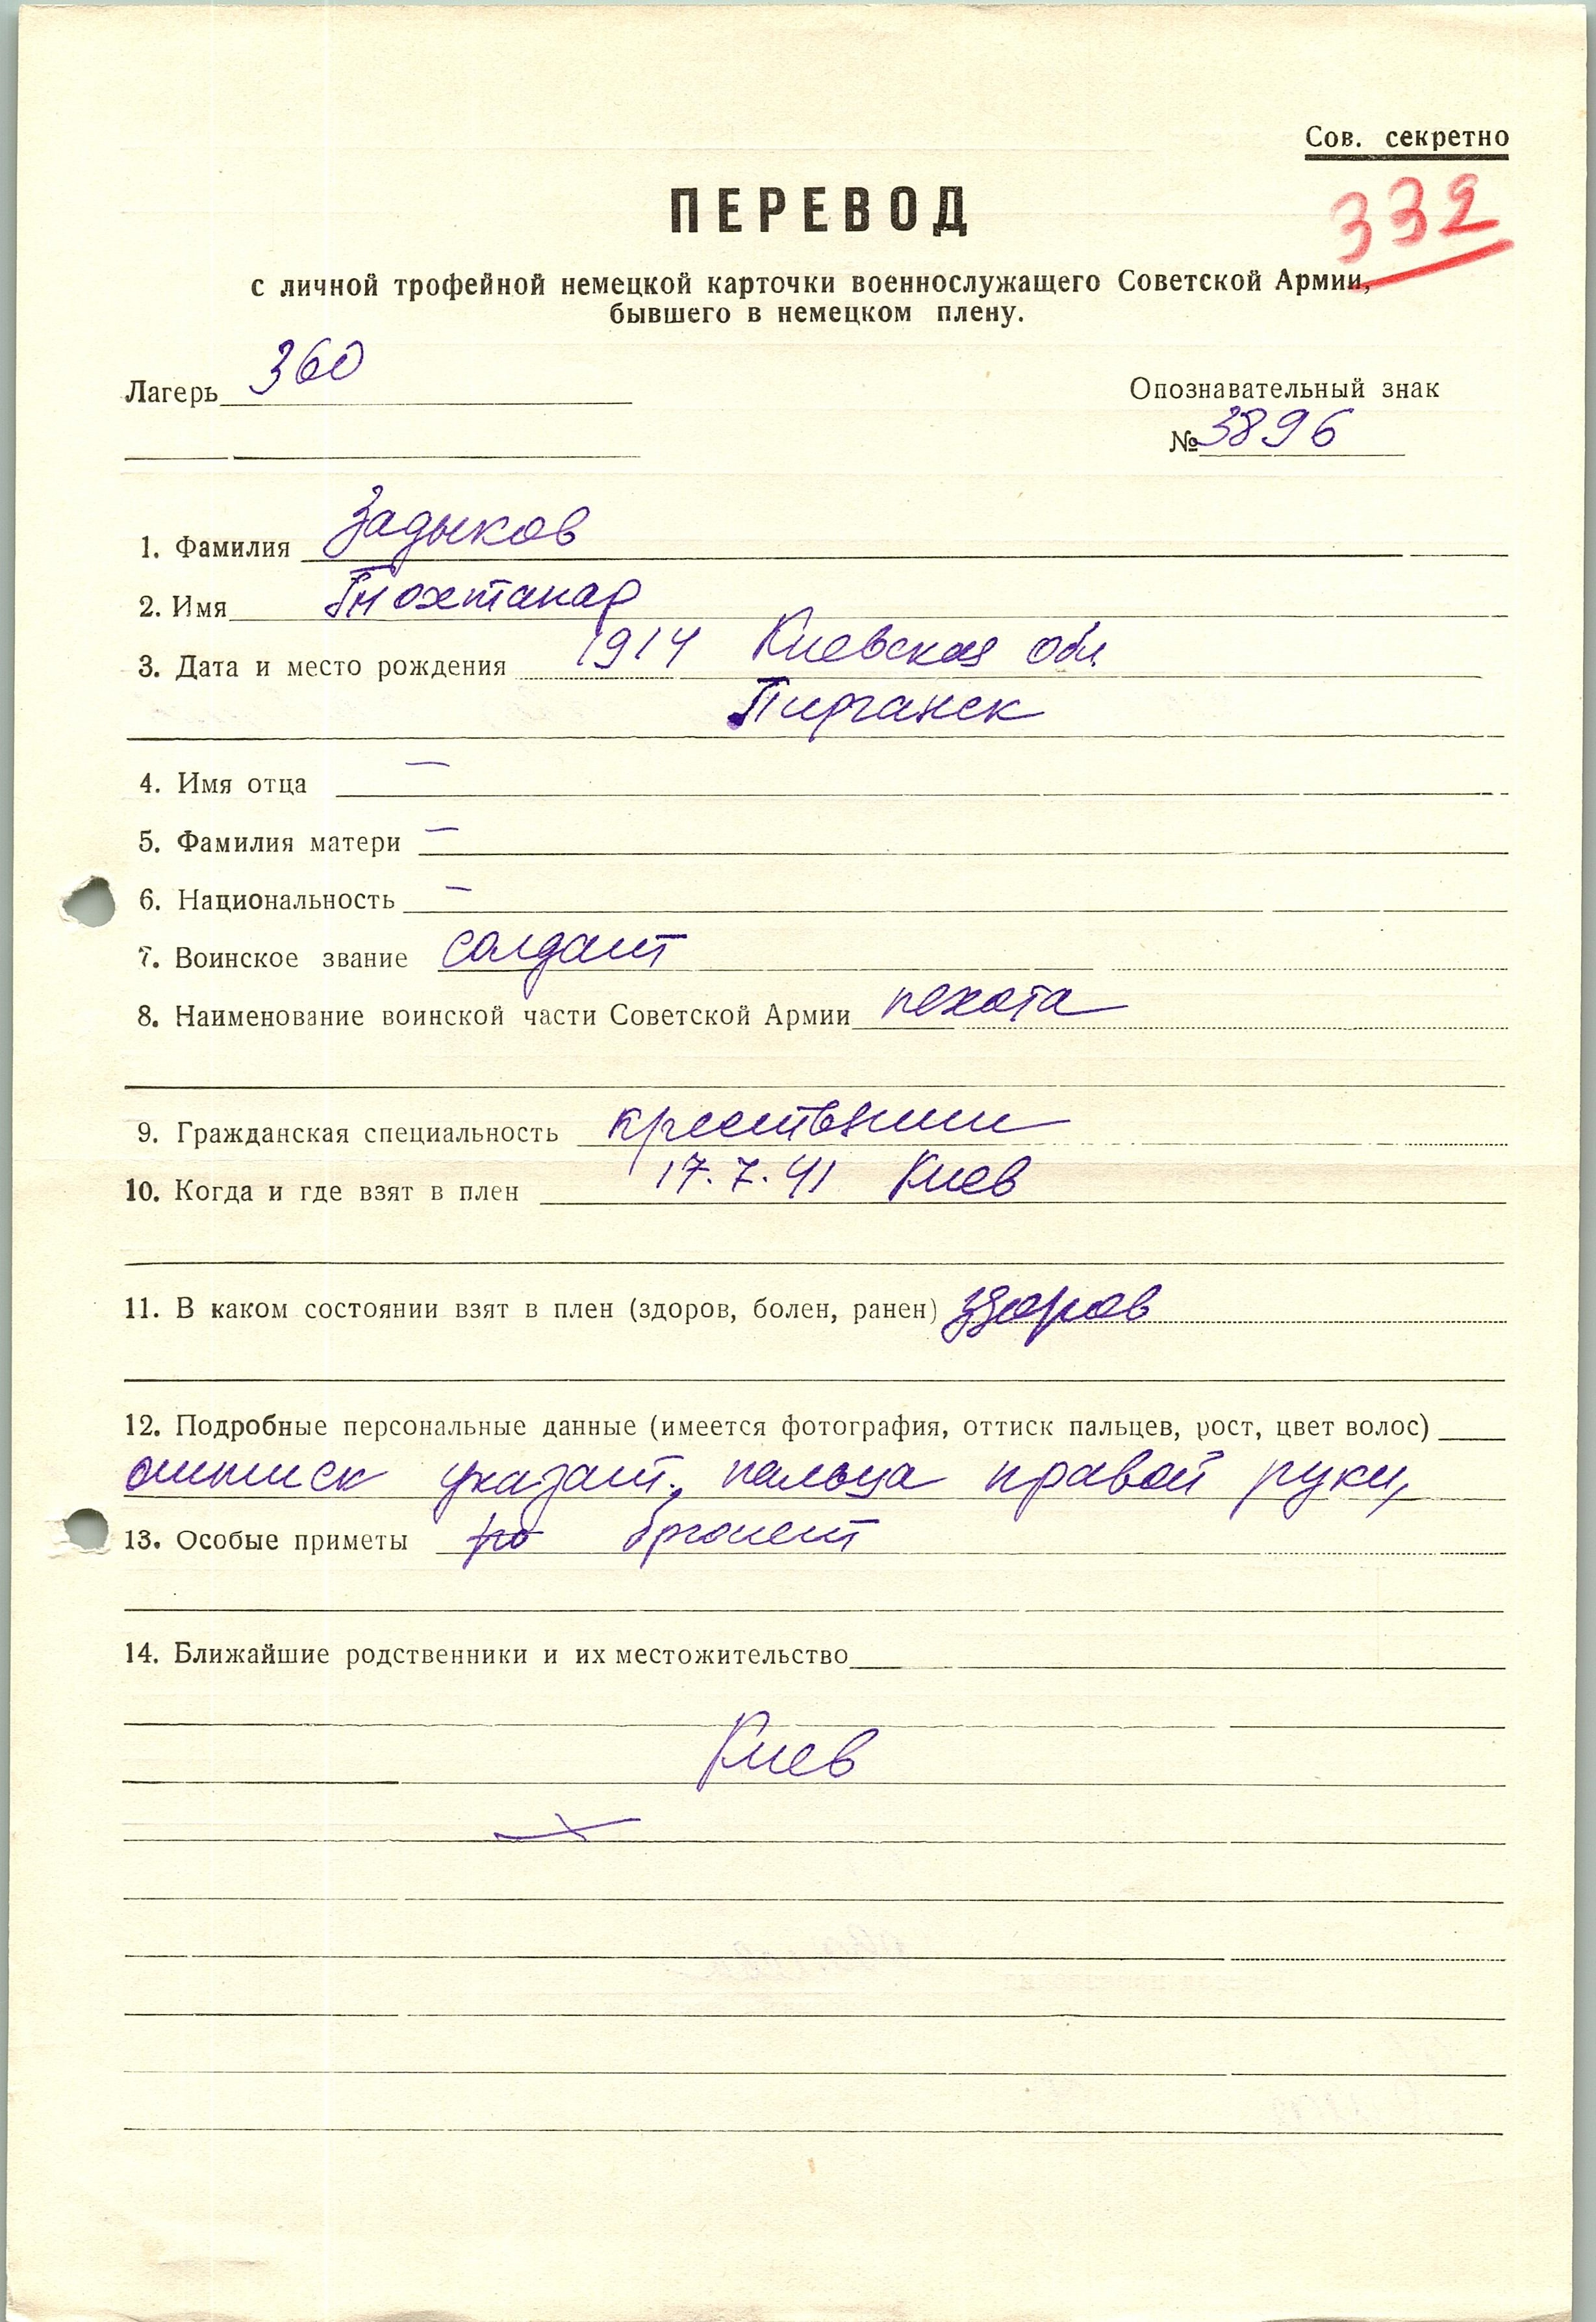 Сов. секретно
332
ПЕРЕВОД
с личной трофейной немецкой карточки военнослужащего Советской Армии,
бывшего в немецком плену.
Лагерь 360
Опознавательный знак
№ 3896
1. Фамилия Задыков
2. Имя
3. Дата и место рождения 1914 Киевская обл
4. Имя отца —
5. Фамилия матери —
6. Национальность —
7. Воинское звание солдат
8. Наименование воинской части Советской Армии пехота
9. Гражданская специальность крестьянин
10. Когда и где взят в плен 17.7.41 Киев
11. В каком состоянии взят в плен (здоров, болен, ранен) здоров
12. Подробные персональные данные (имеется фотография, оттиск пальцев, рост, цвет волос)
оттиск указат. пальца правой руки,
13. Особые приметы брюнет
14. Ближайшие родственники и их местожительство
Киев